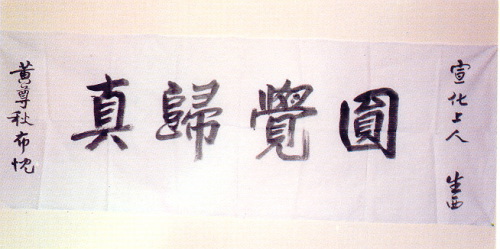 宣化上人 生西
圓覺歸真
黃尊秋布忱